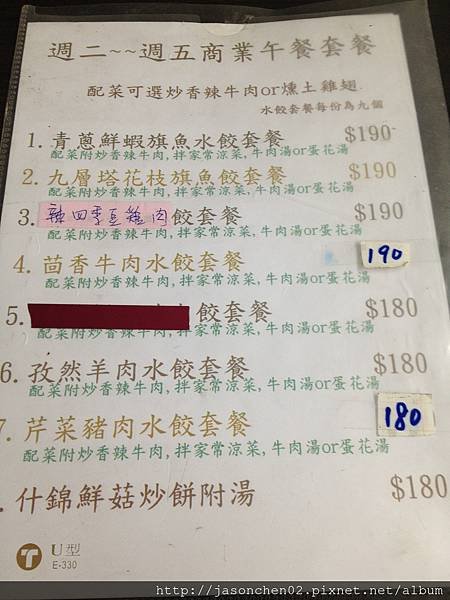 週二~~週五商業午餐套餐
配菜可選炒香辣牛肉or燻土雞翅
水餃套餐每份為九個
1. 青蔥鮮蝦旗魚水餃套餐 $190
配菜附炒香辣牛肉,拌家常涼菜,牛肉湯or蛋花湯
2. 九層塔花枝旗魚餃套餐 $190
配菜附炒香辣牛肉,拌家常涼菜,牛肉湯or蛋花湯
3. 辣四季豆雞肉餃套餐 $190
配菜附炒香辣牛肉,拌家常涼菜,牛肉湯or蛋花湯
4. 茴香牛肉水餃套餐 190
配菜附炒香辣牛肉,拌家常涼菜,牛肉湯or蛋花湯
5. 餃套餐 $180
配菜附炒香辣牛肉,拌家常涼菜,牛肉湯or蛋花湯
6. 孜然羊肉水餃套餐 $180
配菜附炒香辣牛肉,拌家常涼菜,牛肉湯or蛋花湯
7. 芹菜豬肉水餃套餐 180
配菜附炒香辣牛肉,拌家常涼菜,牛肉湯or蛋花湯
. 什錦鮮菇炒餅附湯 $180
U型
E-330
http://jasonchen02.pixnet.net/album